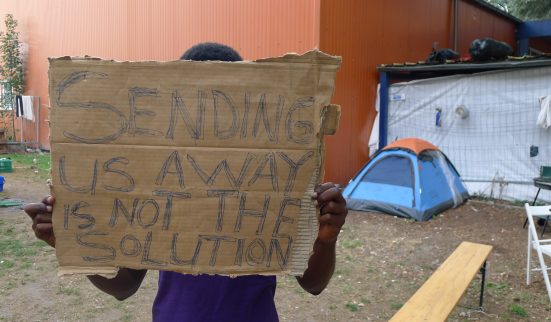 SENDING
US AWAY
IS NOT THE
SOLUTION